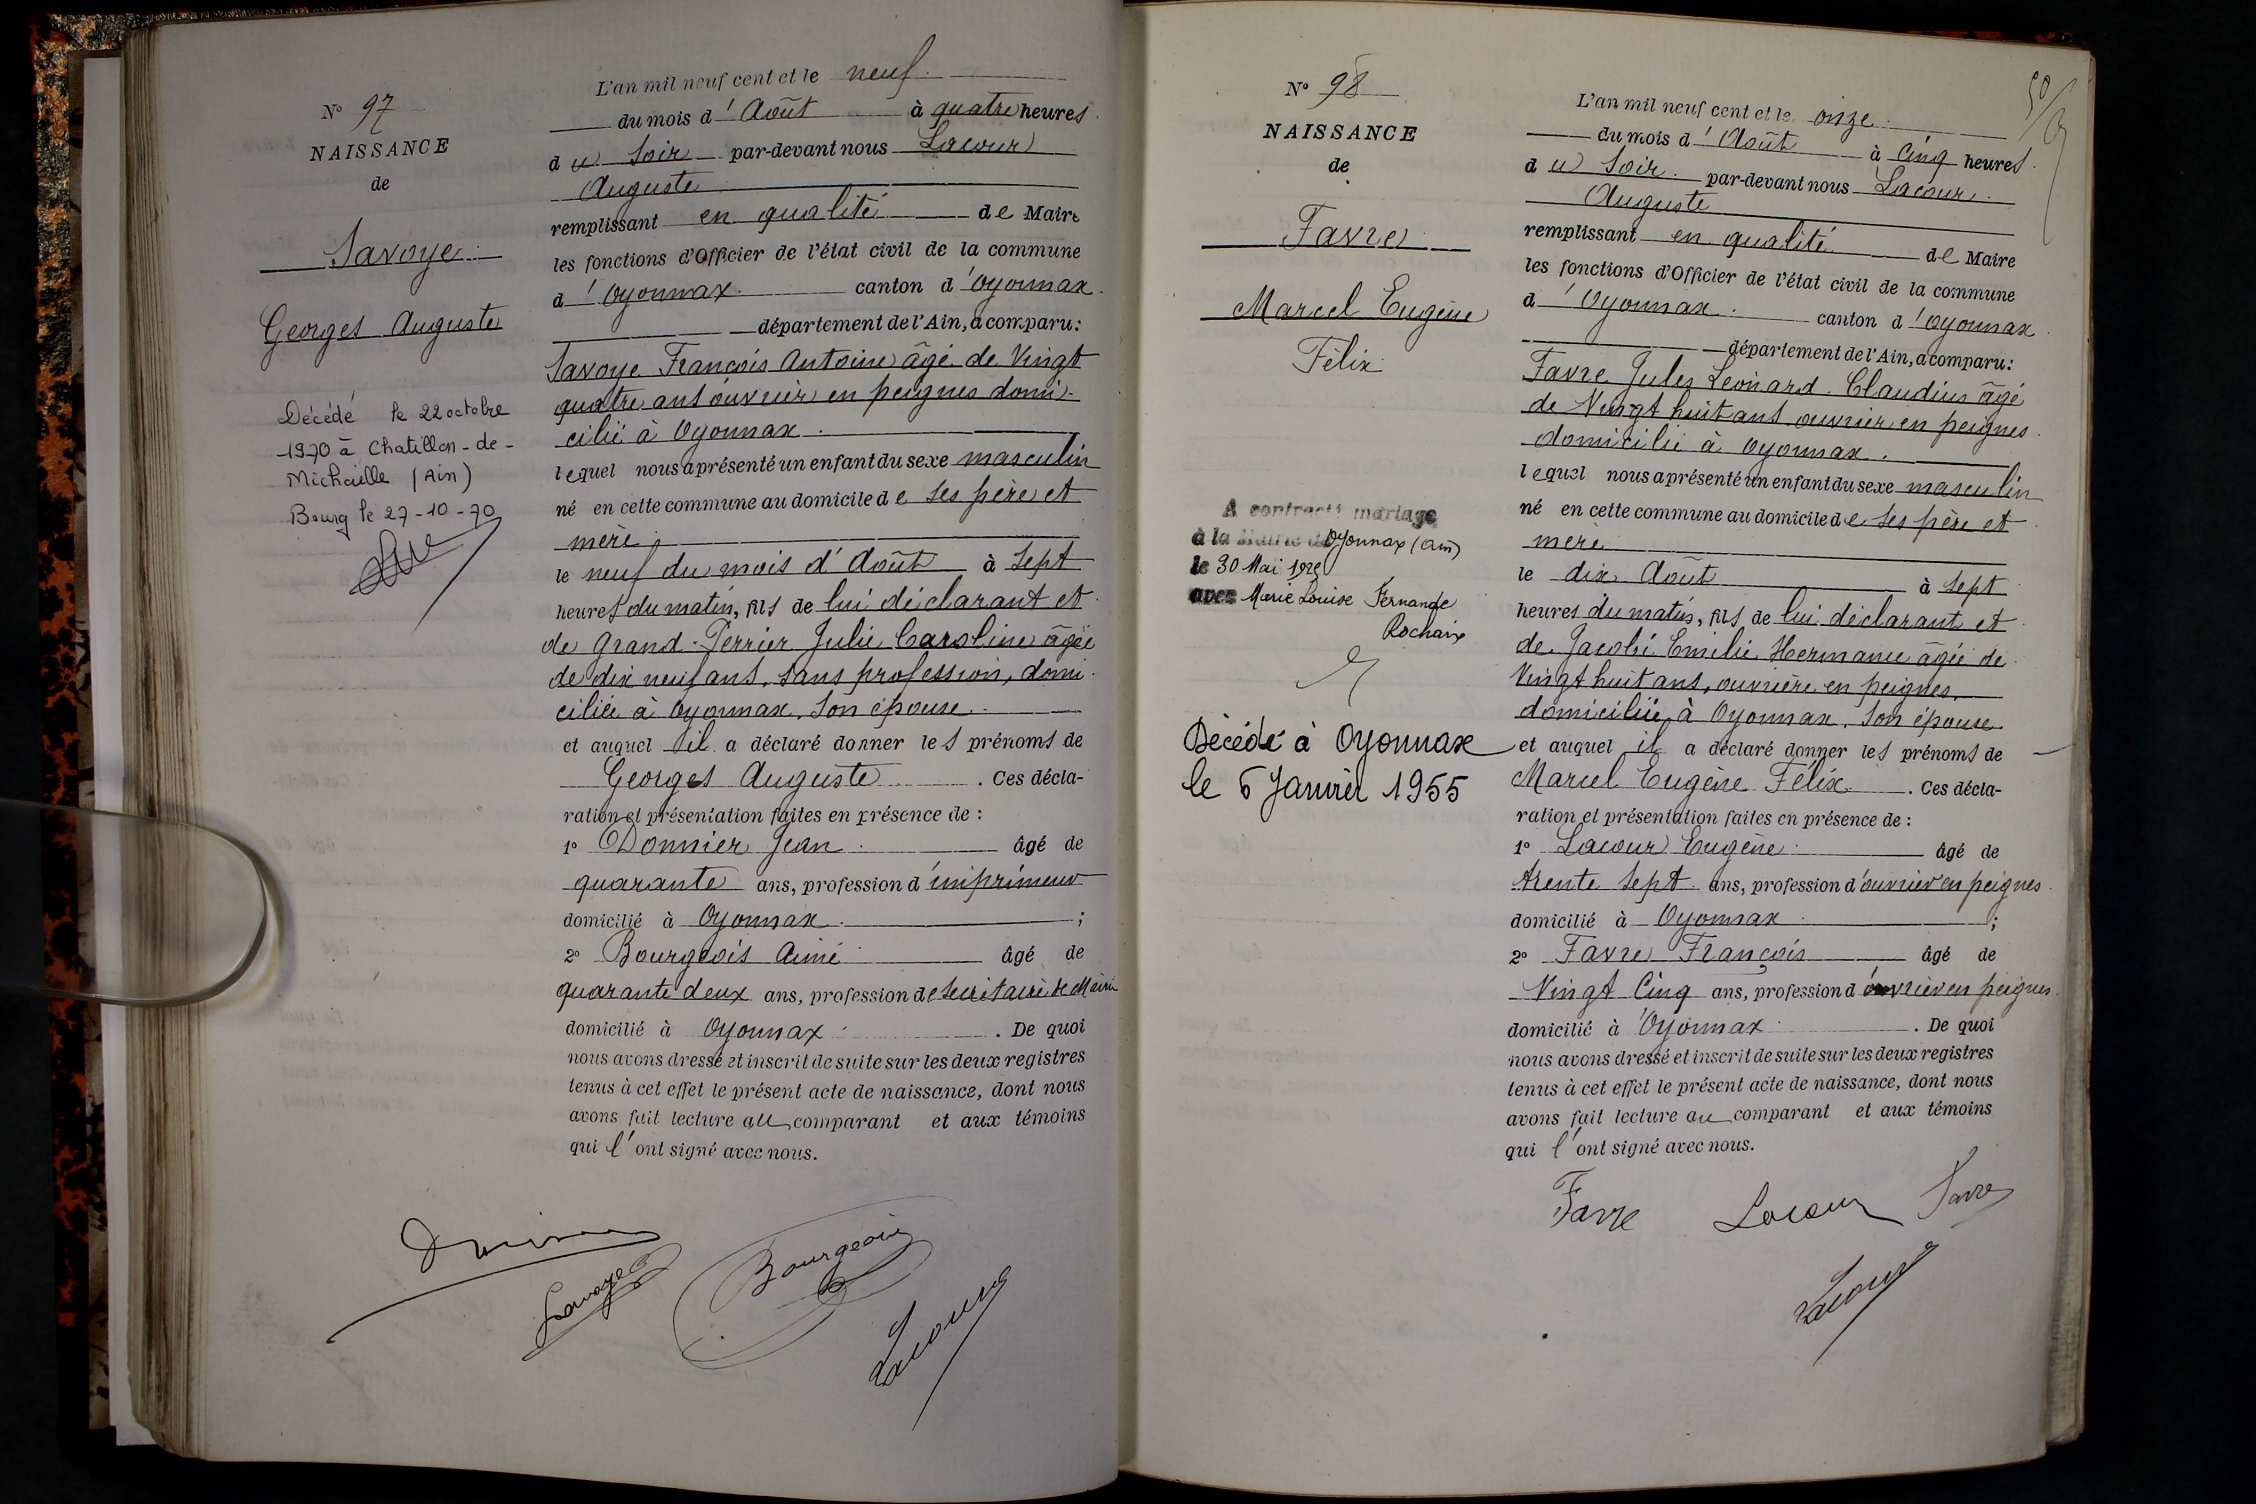 N° 97
NAISSANCE
de
Savoye
Georges Auguste
Décédé le 22 octobre
1970 à Chatillon-de-
Michaille (Ain)
Bourg le 27-10-70
L'an mil neuf cent et le neuf
du mois d'Août à quatre heures
du soir par-devant nous Lacour
Auguste
remplissant en qualité de Maire
les fonctions d'Officier de l'état civil de la commune
d'Oyonnax canton d'Oyonnax
département de l'Ain, a comparu:
Savoye François Antoine âgé de Vingt
quatre ans ouvrier en peignes domi-
cilié à Oyonnax
lequel nous a présenté un enfant du sexe masculin
né en cette commune au domicile de ses père et
mère
le neuf du mois d'Août à sept
heures du matin, fils de lui déclarant et
de Grand-Perrier Julie Caroline âgée
de dix neuf ans, sans profession, domi-
ciliée à Oyonnax, son épouse
et auquel il a déclaré donner les prénoms de
Georges Auguste. Ces décla-
ration et présentation faites en présence de :
1° Donnier Jean âgé de
quarante ans, profession d'imprimeur
domicilié à Oyonnax ;
2° Bourgeois Aimé âgé de
quarante deux ans, profession de secrétaire de Mairie
domicilié à Oyonnax. De quoi
nous avons dressé et inscrit de suite sur les deux registres
tenus à cet effet le présent acte de naissance, dont nous
avons fait lecture au comparant et aux témoins
qui l'ont signé avec nous.
Savoye
Bourgeois
Lacour
50
N° 98
NAISSANCE
de
Favre
Marcel Eugène
Félix
A contracté mariage
à la Mairie de Oyonnax (Ain)
le 30 Mai
avec Marie Louise Fernande
Rochaix
Décédé à Oyonnax
le 6 Janvier 1955
L'an mil neuf cent et le onze
du mois d'Août à Cinq heures
du soir par-devant nous Lacour
Auguste
remplissant en qualité de Maire
les fonctions d'Officier de l'état civil de la commune
d'Oyonnax canton d'Oyonnax
département de l'Ain, a comparu:
Favre Jules Léonard Claudius âgé
de Vingt huit ans ouvrier en peignes
domicilié à Oyonnax.
lequel nous a présenté un enfant du sexe masculin
né en cette commune au domicile de ses père et
mère
le dix Août à sept
heures du matin, fils de lui déclarant et
de Jacobi Emilie Hermance âgée de
Vingt huit ans, ouvrière en peignes,
domiciliée à Oyonnax, son épouse
et auquel il a déclaré donner les prénoms de
Marcel Eugène Félix. Ces décla-
ration et présentation faites en présence de :
1° Lacour Eugène âgé de
trente sept ans, profession d'ouvrier en peignes
domicilié à Oyonnax ;
2° Favre François âgé de
Vingt Cinq ans, profession d'ouvrier en peignes
domicilié à Oyonnax. De quoi
nous avons dressé et inscrit de suite sur les deux registres
tenus à cet effet le présent acte de naissance, dont nous
avons fait lecture au comparant et aux témoins
qui l'ont signé avec nous.
Favre Lacour Favre
Lacour